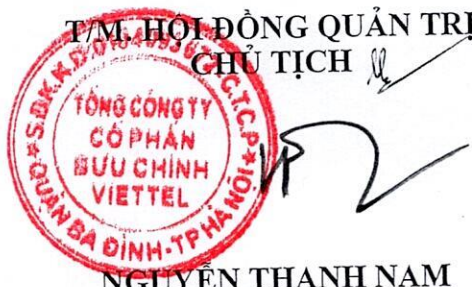 T/M. HỘI ĐỒNG QUẢN TRỊ
CHỦ TỊCH
TỔNG CÔNG TY
CỔ PHẦN
BƯU CHÍNH
VIETTEL
QUẬN BA ĐÌNH-TP HÀ NỘI
NGUYỄN THANH NAM